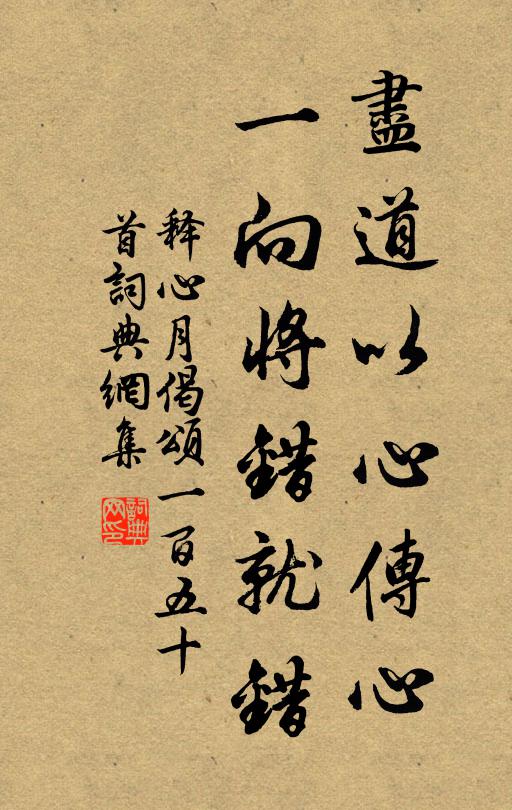 盡道以心傳心
一向將錯就錯
释心月偈頌一百五十
首詞典網集
詞典
网印